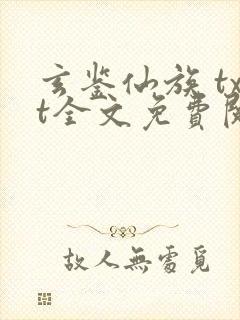 玄鉴仙族 tx
t全文免費閱
故人無處覓